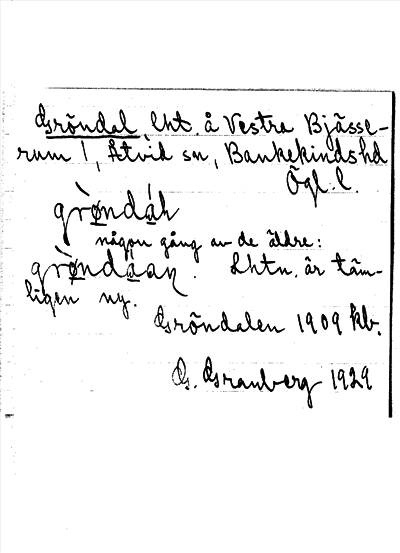 Gröndal, lht. å Vestra Bjässe-
rum !, Åtvid sn, Bankekinds hd
Ögl. l.
grø̀ndáɫ
någon gång av de äldre:
grø̀ndáan. Lhtn. är täm-
ligen ny.
Gröndalen 1909 kb.
G. Granberg 1929